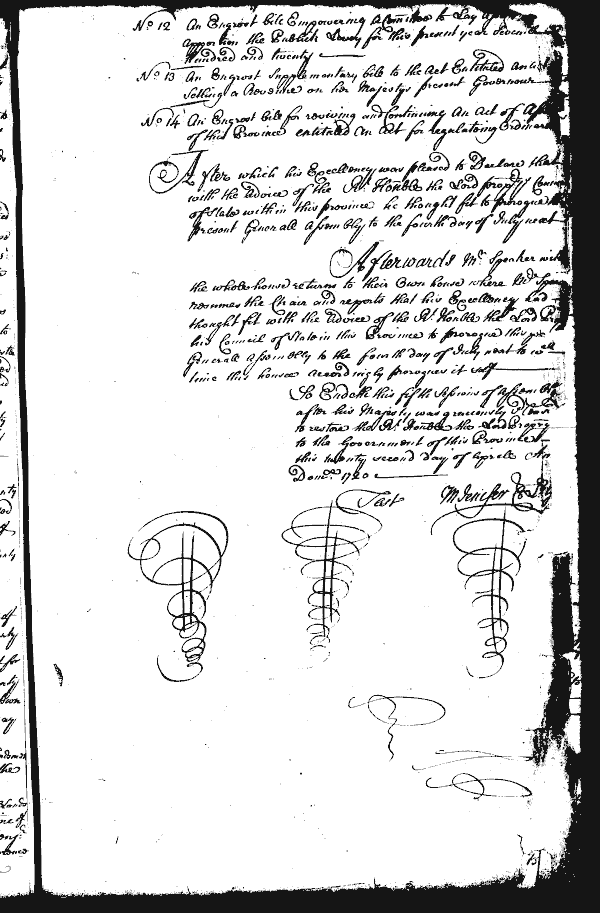 No 12 An Engrost bill Empowering a Comittee to Lay
apportion the Publick Levey for this present year Seventeen
Hundred and twenty
No 13 An Engrost Supplementary bill to the Act Entituled an Act
Setling a Revenue on her Majestys present Governour
No 14 An Engrost bill for reviving and Continuing An Act of
of this Province entituled An Act for regulateing Ordinary
After which his Excellency was pleased to Declare that
with the advice of the Rt. Honble the Lord propry
of State within this province he thought fit to prorogue
present Generall Assembly to the fourth day of July next
Afterwards Mr. Speaker with
the whole house returns to their Own house where Mr.
resumes the Chair and reports that his Excellency had
thought fit with the Advice of the Rt. Honble the Lord
his Council of State in this Province to prorogue this
Generall Assembly to the fourth day of July next to
time this house accordingly prorogues it self
So Endeth this fifth Sessions of Assembly
after his Majesty was graciously
to restore the Rt. Honble the Lord Propry
to the Government of this Province
this twenty second day of Aprill An
Dom. 1720
Test M Jenifer